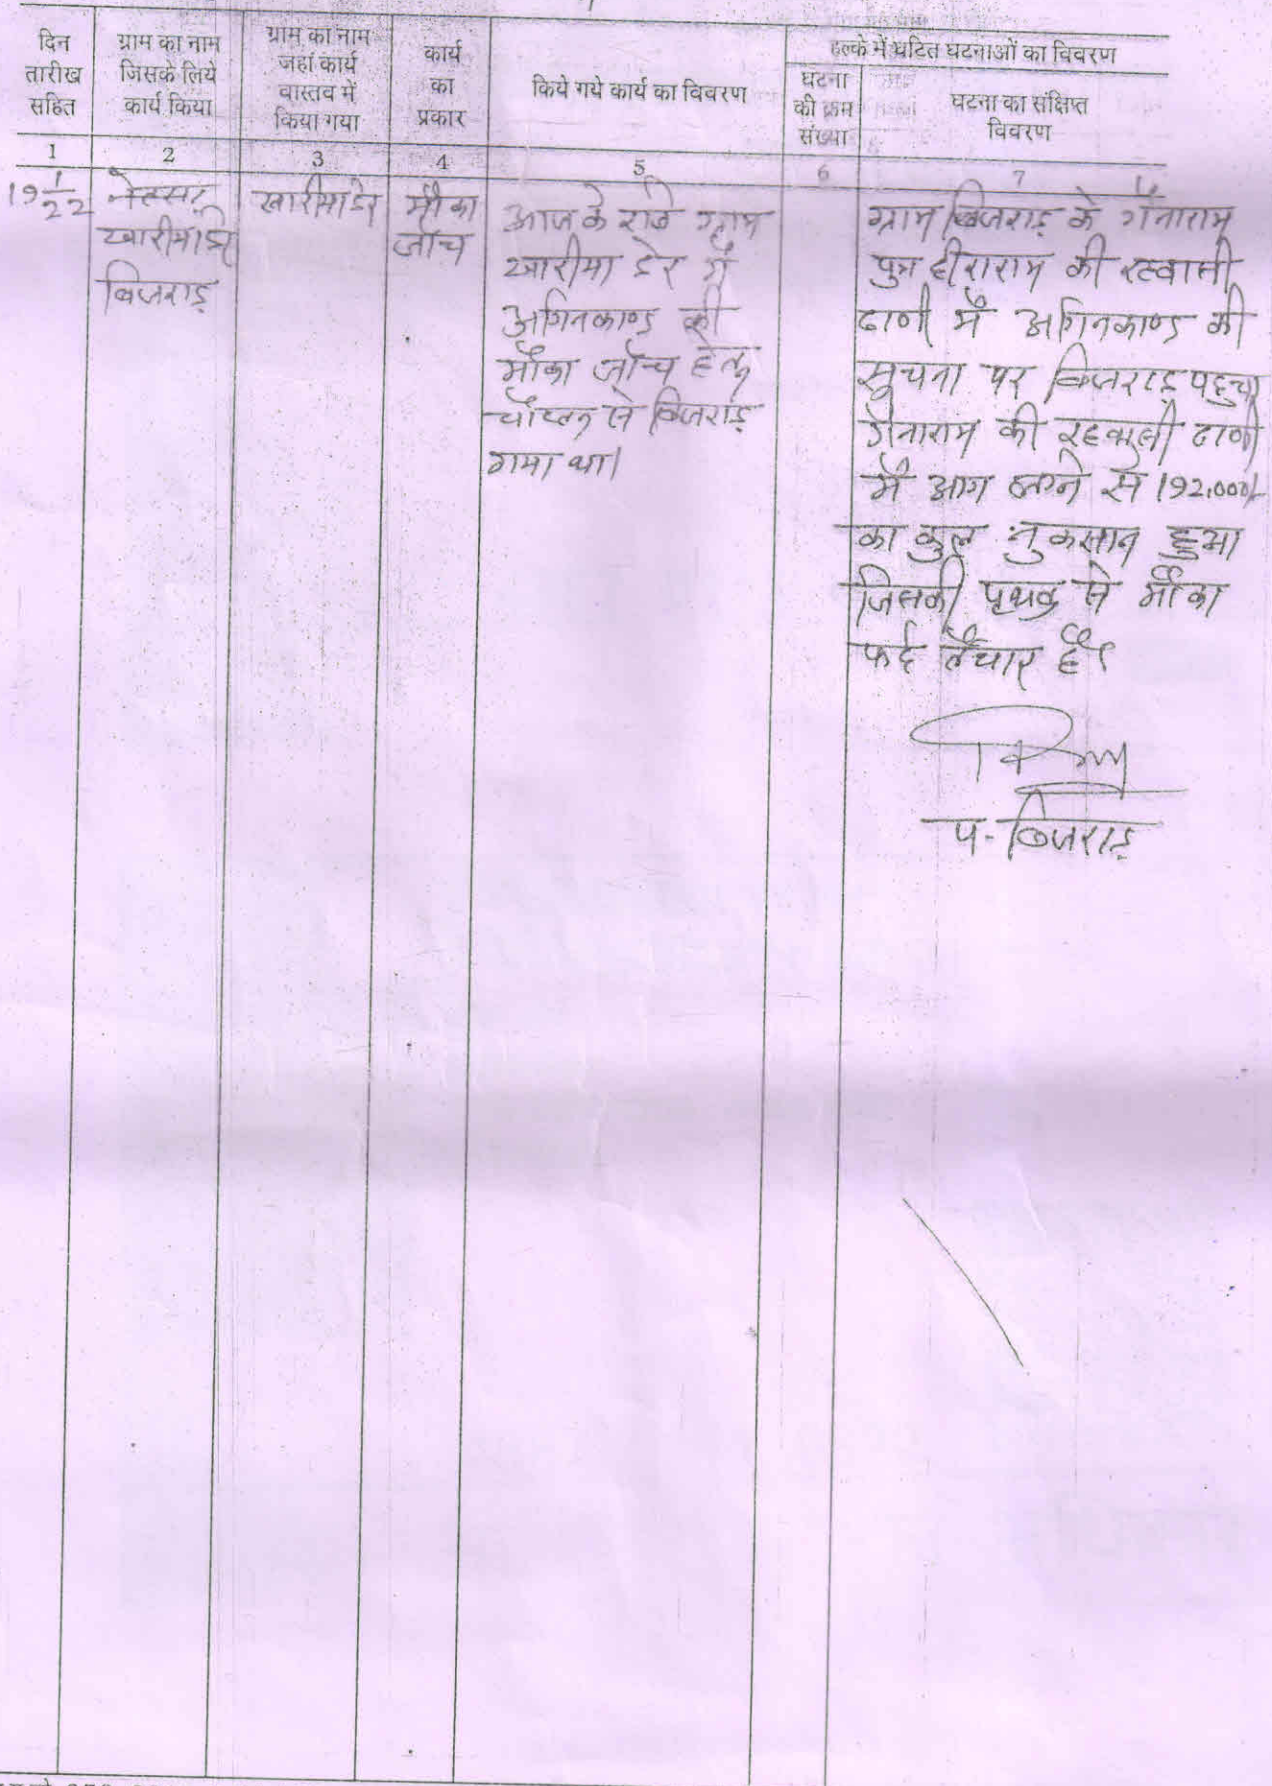 दिन
तारीख
सहित
ग्राम का नाम
जिसके लिये
कार्य किया
ग्राम का नाम
जहां कार्य
वास्तव में
किया गया
कार्य
का
प्रकार
किये गये कार्य का विवरण
हल्के में घटित घटनाओं का विवरण
घटना
की क्रम
संख्या
घटना का संक्षिप्त
विवरण
1 2 3 4 5 6 7
19 1/22
खारीमाडेर
बिजराड़
खारीमाडेर
मौका
जाँच
आज के रोज ग्राम
खारीमा डेर में
अग्निकाण्ड की
मौका जाँच हेतु
चौहटन से बिजराड़
गया था।
ग्राम बिजराड़ के गेनाराम
पुत्र हीराराम की रहवासी
ढाणी में अग्निकाण्ड की
सूचना पर बिजराड़ पहुचा
गेनाराम की रहवासी ढाणी
में आग लगने से 192,000/-
का कुल नुकसान हुआ
जिसकी पृथक से मौका
फर्द तैयार है।
प- बिजराड़